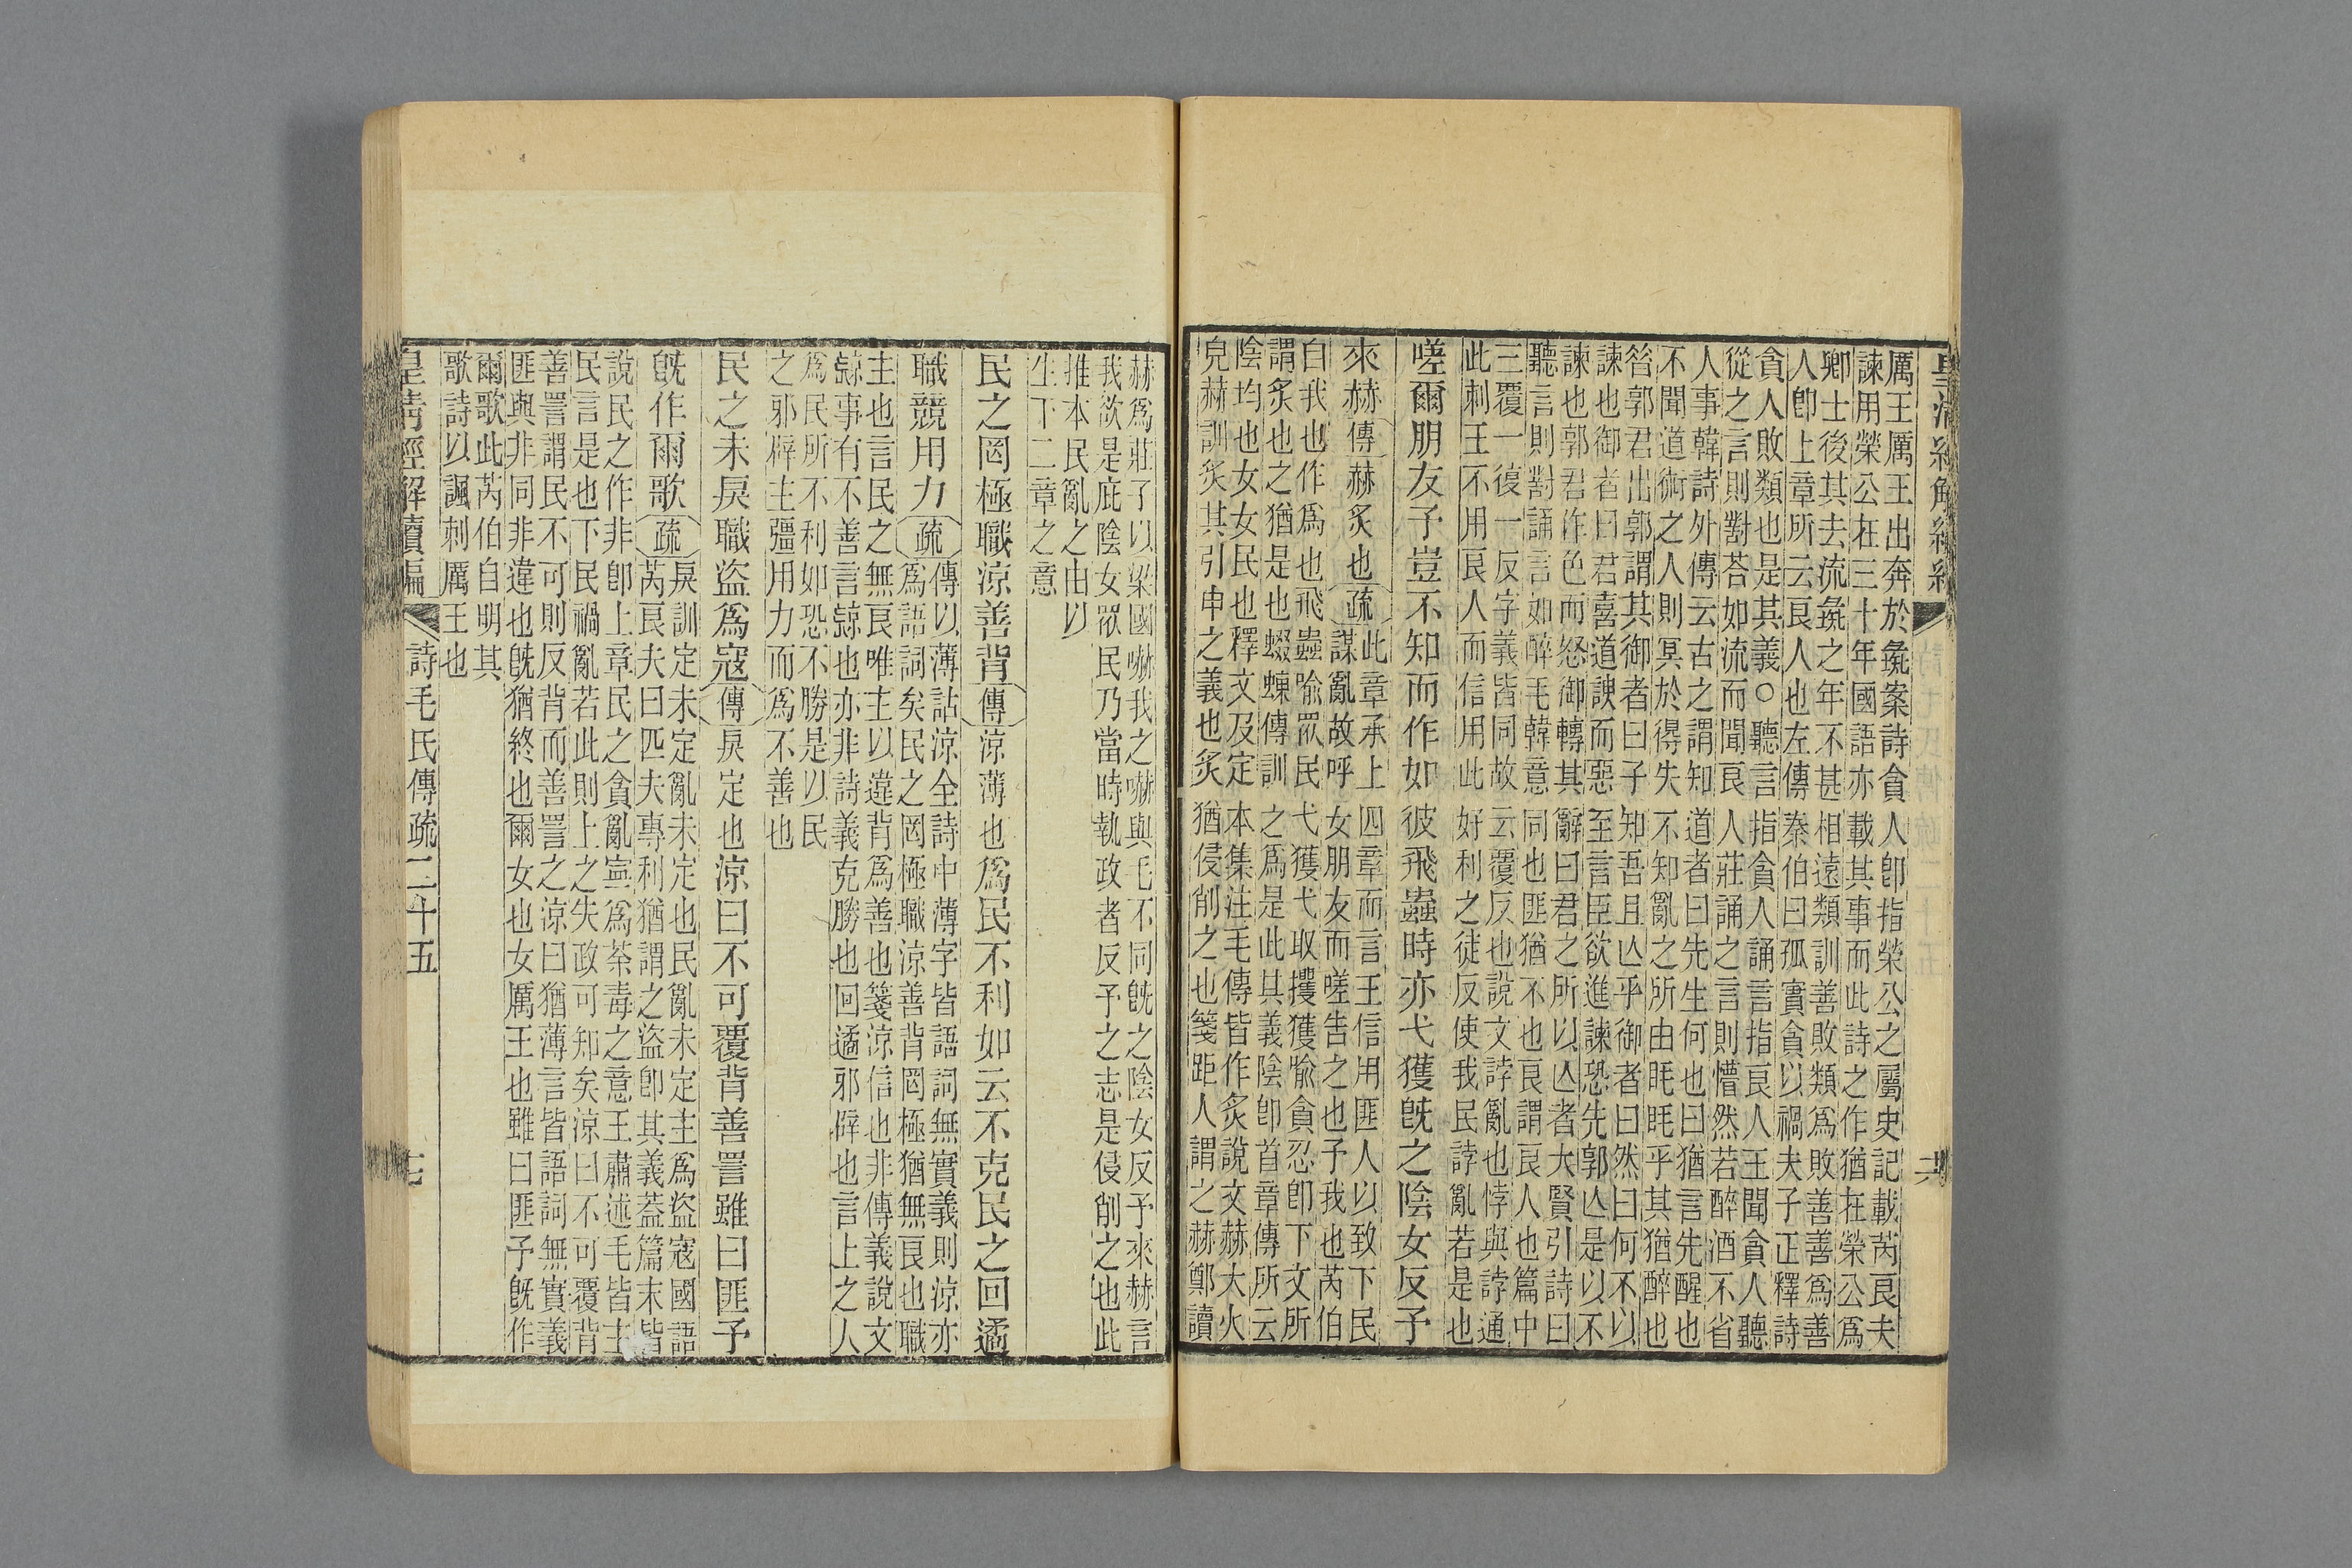 厲王厲王出奔於彘案詩貪人卽指榮公之屬史記載芮良夫
諫用榮公在三十年國語亦載其事而此詩之作猶在榮公爲
卿士後其去流彘之年不甚相遠類訓善敗類爲敗善善爲善
人卽上章所云良人也左傳秦伯曰孤實貪以禍夫子正釋詩
貪人敗類也是其義○聽言指貪人誦言指良人王聞貪人聽
從之言則對荅如流而聞良人莊誦之言則懵然若醉酒不省
人事韓詩外傳云古之謂知道者曰先生何也曰猶言先醒也
不聞道術之人則冥於得失不知亂之所由眊眊乎其猶醉也
昝郭君出郭謂其御者曰子知吾且亾乎御者曰然曰何不以
諫也御者曰君喜道諛而惡至言臣欲進諫恐先郭亾是以不
諫也郭君作色而怒御轉其辭曰君之所以亾者大賢引詩曰
聽言則對誦言如醉毛韓意同也匪猶不也良謂良人也篇中
三覆一復一反字義皆同故云覆反也說文誖亂也悖與誖通
此刺王不用良人而信用此好利之徒反使我民誖亂若是也
嗟爾朋友予豈不知而作如彼飛蟲時亦弋獲旣之陰女反予
來赫傳赫炙也疏此章承上四章而言王信用匪人以致下民
謀亂故呼女朋友而嗟告之也予我也芮伯
自我也作爲也飛蟲喻眾民弋獲弋取攫獲喻貪忍卽下文所
謂炙也之猶是也蝃蝀傳訓之爲是此其義陰卽首章傳所云
陰均也女女民也釋文及定本集注毛傳皆作炙說文赫大火
皃赫訓炙其引申之義也炙猶侵削之也箋距人謂之赫鄭讀
赫爲莊子以梁國嚇我之嚇與毛不同旣之陰女反予來赫言
我欲是庇陰女眾民乃當時執政者反予之志是侵削之也此
推本民亂之由以
生下二章之意
民之罔極職涼善背傳涼薄也爲民不利如云不克民之回遹
職競用力疏傳以薄詁涼全詩中薄字皆語詞無實義則涼亦
爲語詞矣民之罔極職涼善背罔極猶無良也職
主也言民之無良唯主以違背爲善也箋涼信也非傳義說文
䚘事有不善言䚘也亦非詩義克勝也回遹邪僻也言上之人
爲民所不利如恐不勝是以民
之邪僻主彊用力而爲不善也
民之未戾職盜爲寇傳戾定也涼曰不可覆背善詈雖曰匪予
旣作爾歌疏戾訓定未定亂未定也民亂未定主爲盜寇國語
芮良夫曰匹夫專利猶謂之盜卽其義蓋篇末皆
說民之作非卽上章民之貪亂寍爲荼毒之意王肅述毛皆主
民言是也下民禍亂若此則上之失政可知矣涼曰不可覆背
善詈謂民不可則反背而善詈之涼曰猶薄言皆語詞無實義
匪與非同非違也旣猶終也爾女也女厲王也雖曰匪予旣作
爾歌此芮伯自明其
歌詩以諷刺厲王也
皇清經解續編 詩毛氏傳疏二十五